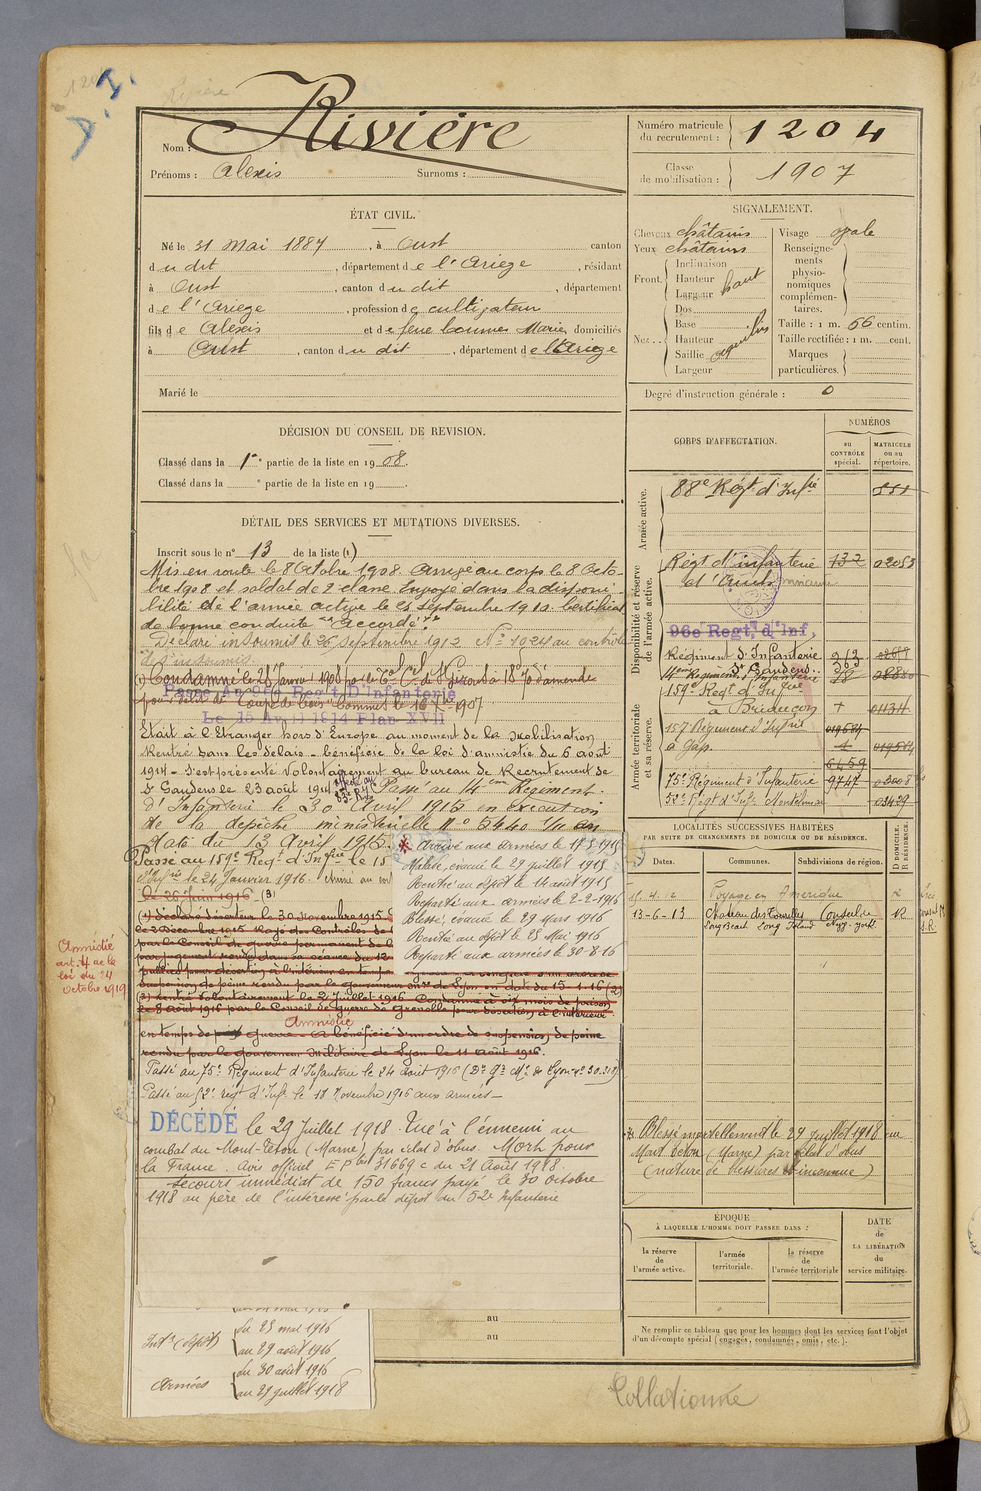 Nom : Rivière
Prénoms : Alexis Surnoms :
ÉTAT CIVIL.
Né le 31 Mai 1887, à Oust canton
du dit, département de l'Ariège, résidant
à Oust, canton du dit, département
de l'Ariège, profession de cultivateur
fils de Alexis et de feue Marie, domiciliés
à Oust, canton du dit, département de l'Ariège
Marié le
DÉCISION DU CONSEIL DE REVISION.
Classé dans la 1re partie de la liste en 1908.
Classé dans la e partie de la liste en 19 .
DÉTAIL DES SERVICES ET MUTATIONS DIVERSES.
Inscrit sous le n° 13 de la liste (1)
Mis en route le 8 Octobre 1908. Arrivé au corps le 8 Octo-
bre 1908 et soldat de 2e classe. Envoyé dans la disponi-
bilité de l'armée active le 25 septembre 1910. Certificat
de bonne conduite "Accordé".
Déclaré insoumis le 26 septembre 1912 N° 1024 au contrôle
des insoumis.
(1) Condamné le 28 Janvier 1908 par le de St Girons à 18f 70 d'amende
pour délit de coupe de bois commis le 16 1907
Passé Au 96e Regt D'Infanterie
Le 15 Avril 1914 Plan XVII
Etait à l'Etranger hors d'Europe au moment de la mobilisation
Rentré dans les délais - bénéficie de la loi d'amnistie du 5 août
1914 - S'est présenté volontairement au bureau de Recrutement de
St Gaudens le 23 août 1914 Passé au 14em Régiment
D'Infanterie le 30 Avril 1915 en exécution
de la dépêche ministérielle No 5440 1/11 en
date du 13 Avril 1915.
Passé au 159e Regt d'Infrie le 15
d'Infrie le 24 Janvier 1916.
le 26 Juin 1916 - (3)
* Arrivé aux armées le 17-5-1915
Malade, évacué le 29 juillet 1915
Rentré au dépôt le 14 août 1915
Reparti aux armées le 2-2-1916
Blessé, évacué le 29 Mars 1916
Rentré au dépôt le 25 Mai 1916
Reparti aux armées le 30-8-16
(1) Déclaré déserteur le 30 novembre 1915
le 2 Décembre 1915 Rayé des Contrôles de
par le Conseil de guerre permanent de
par jugement rendu dans sa séance du 12
pour désertion à l'intérieur en temps
suspension de peine rendu par le gouverneur de Lyon en date du 15-1-16 (2)
(3) Rentré volontairement le 2 Juillet 1916 Condamné à dix mois de prison
le 8 août 1916 par le Conseil de Guerre de Grenoble pour désertion à l'intérieur
Amnistié
en temps de guerre - a bénéficié d'un ordre de suspension de peine
rendu par le gouverneur militaire de Lyon le 11 août 1916.
Passé au 75e Régiment d'Infanterie le 24 août 1916
Passé au 52e régt d'Infie le 18 Novembre 1916 aux armées -
DÉCÉDÉ le 29 Juillet 1918. Tué à l'ennemi au
combat du Mont-Téton (Marne) par éclat d'obus. Mort pour
la France. Avis officiel 31669 c du 21 Août 1918.
Secours immédiat de 150 francs payé le 30 Octobre
1918 au père de l'intéressé par le dépôt du 52e Infanterie
Amnistié
art. 4 de la
loi du 24
Octobre 1919
Intr (dépôt)
du 25 mai 1916
au 29 août 1916
Armées
du 30 août 1916
au 29 juillet 1918
au
au
Numéro matricule du recrutement : 1204
Classe de mobilisation : 1907
SIGNALEMENT.
Cheveux châtains
Yeux châtains
Front. Inclinaison
Hauteur haut
Largeur
Nez... Dos
Base
Hauteur
Saillie
Largeur
Visage ovale
Renseignements physionomiques complémentaires.
Taille : 1 m. 66 centim.
Taille rectifiée : 1 m. cent.
Marques particulières.
Degré d'instruction générale : 0
CORPS D'AFFECTATION.
NUMÉROS
au CONTRÔLE spécial.
MATRICULE ou au répertoire.
Armée active.
88e Régt d'Infie
Disponibilité et réserve de l'armée active.
Régt d'infanterie 132 02053
96e Regt d'Inf.
Régiment d'Infanterie 912
St Gaudens
14em Régiment d'Infanterie
159e Regt d'Infrie
à Briançon + 01134
Armée territoriale et sa réserve.
157 Régiment d'Infrie
à Gap.
6459
75e Régiment d'Infanterie 9747
52e Regt d'Infie Montélimar
LOCALITÉS SUCCESSIVES HABITÉES
PAR SUITE DE CHANGEMENTS DE DOMICILE OU DE RÉSIDENCE.
Dates.
Communes.
Subdivisions de région.
D DOMICILE. R RÉSIDENCE.
Voyage en Amérique R
13-6-13 Chateau des Tourelles R
Long Beach Long Island
* Blessé mortellement le 29 juillet 1918 au
Mont Téton (Marne) par éclat d'obus
(nature de blessures inconnue)
ÉPOQUE
À LAQUELLE L'HOMME DOIT PASSER DANS :
la réserve de l'armée active.
l'armée territoriale.
la réserve de l'armée territoriale
DATE de LA LIBÉRATION du service militaire.
Ne remplir ce tableau que pour les hommes dont les services font l'objet
d'un décompte spécial (engagés, condamnés, omis, etc.).
Collationné